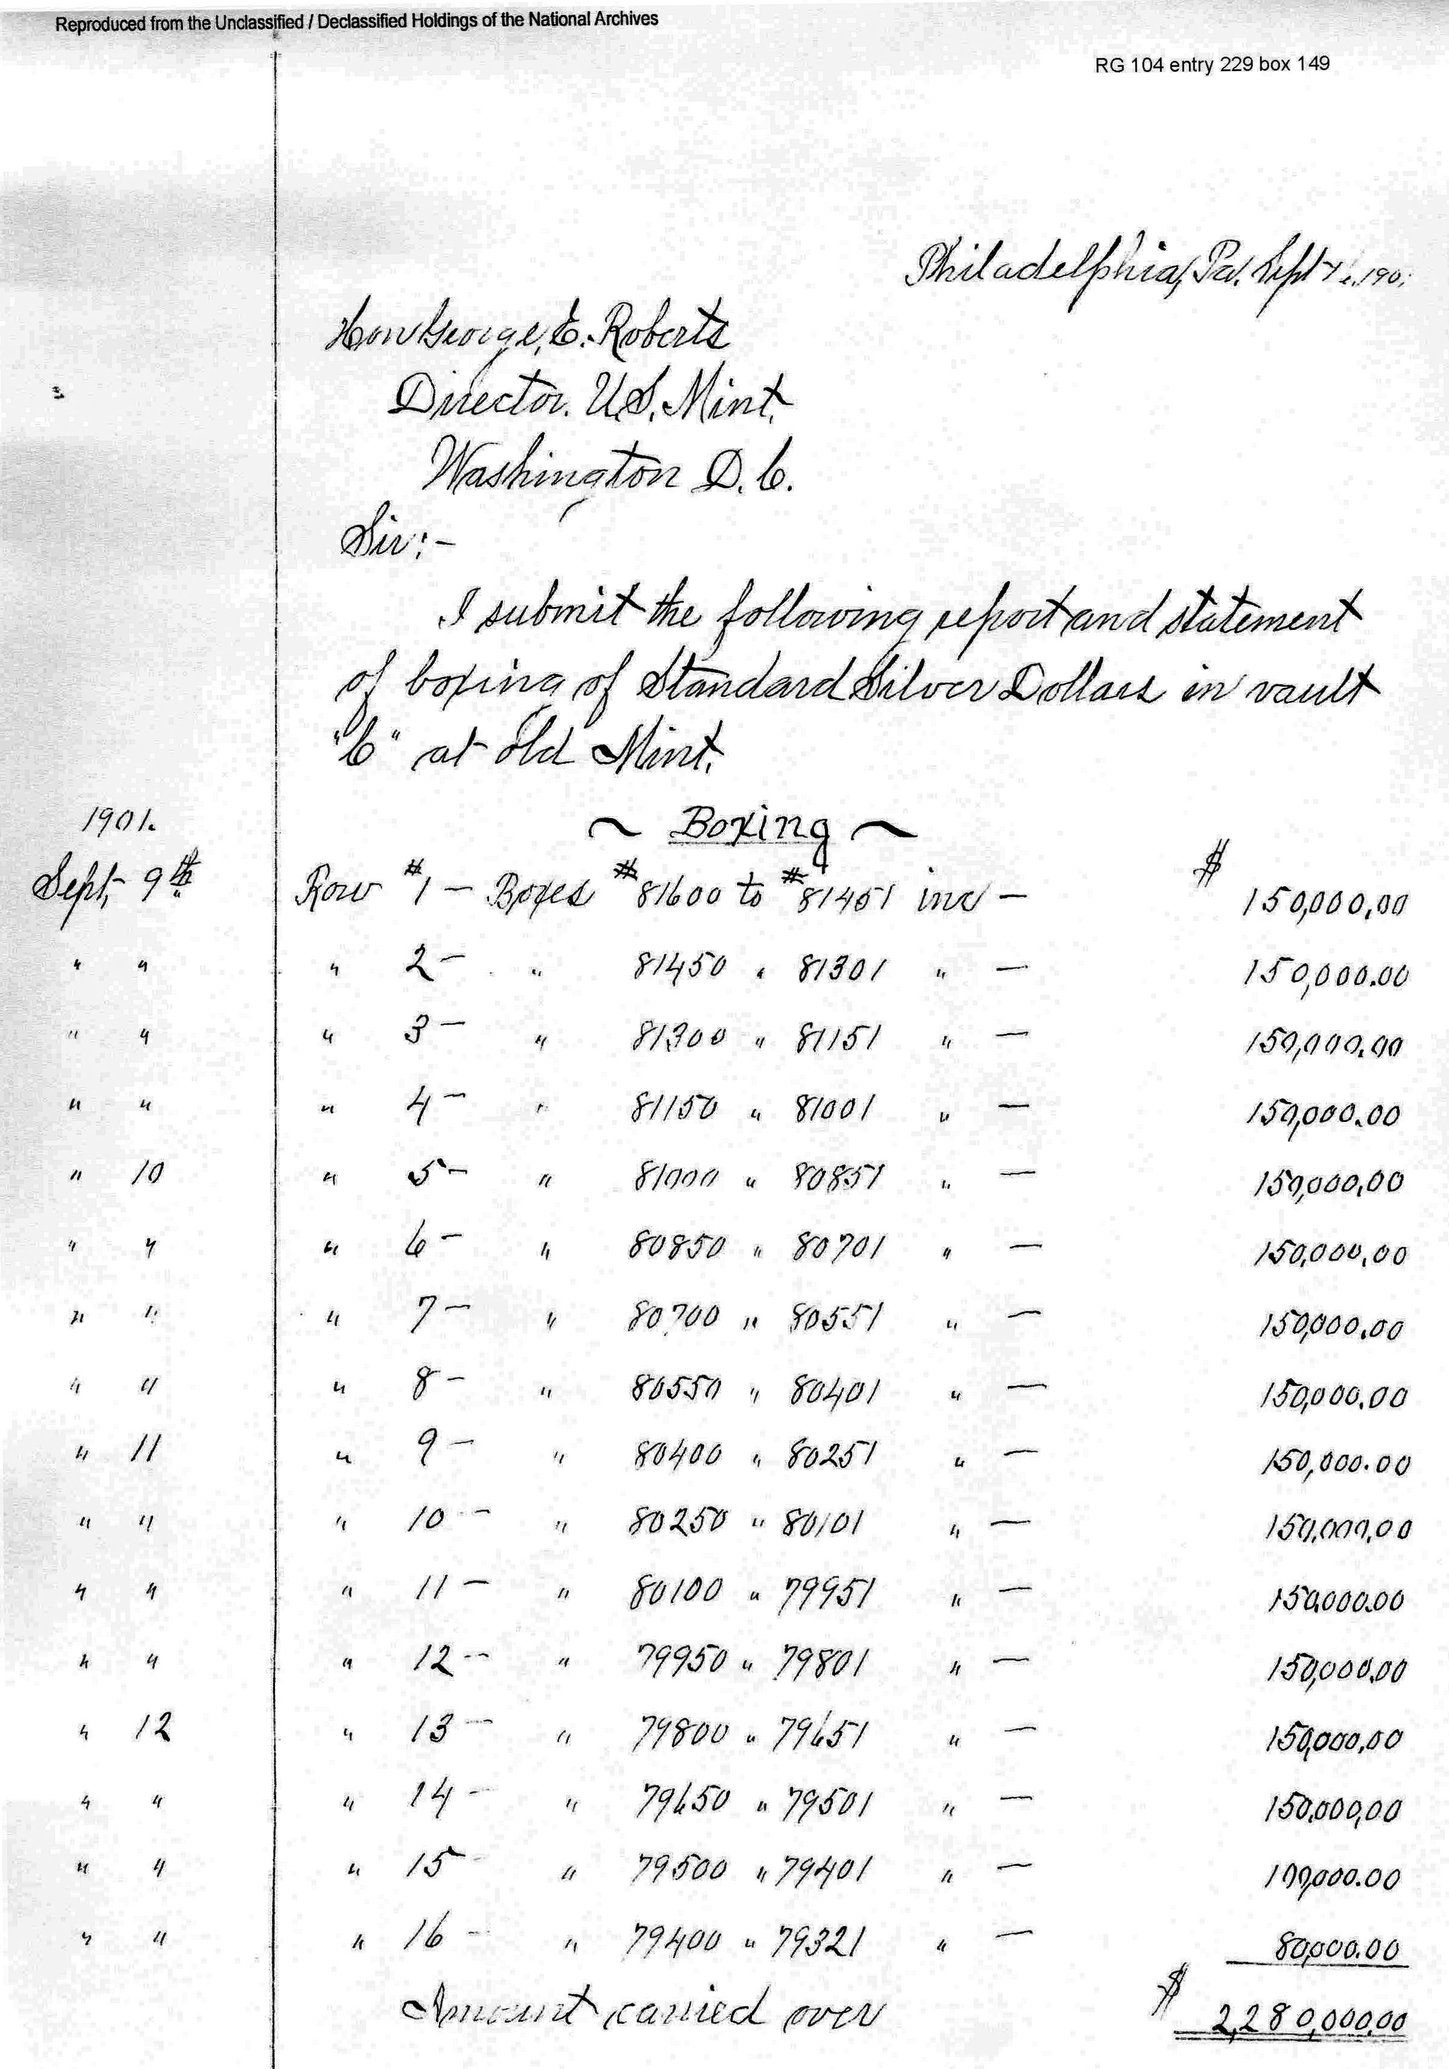 Reproduced from the Unclassified / Declassified Holdings of the National Archives
RG 104 entry 229 box 149
Philadelphia, Pa. Sept 190
Hon George, E. Roberts
Director. U.S. Mint.
Washington D.C.
Sir:-
I submit the following report and statement
of boxing of Standard Silver Dollars in vault
"C" at old Mint.
1901.
~ Boxing ~
Sept, 9th Row #1 — Boxes #81600 to #81451 inc — $ 150,000.00
" " " 2 — " 81450 " 81301 " — 150,000.00
" " " 3 — " 81300 " 81151 " — 150,000.00
" " " 4 — " 81150 " 81001 " — 150,000.00
" 10 " 5 — " 81000 " 80851 " — 150,000.00
" " " 6 — " 80850 " 80701 " — 150,000.00
" " " 7 — " 80700 " 80551 " — 150,000.00
" " " 8 — " 80550 " 80401 " — 150,000.00
" 11 " 9 — " 80400 " 80251 " — 150,000.00
" " " 10 — " 80250 " 80101 " — 150,000.00
" " " 11 — " 80100 " 79951 " — 150,000.00
" " " 12 — " 79950 " 79801 " — 150,000.00
" 12 " 13 — " 79800 " 79651 " — 150,000.00
" " " 14 — " 79650 " 79501 " — 150,000,00
" " " 15 — " 79500 " 79401 " — 100,000.00
" " " 16 — " 79400 " 79321 " — 80,000.00
Amount carried over $ 2,280,000.00